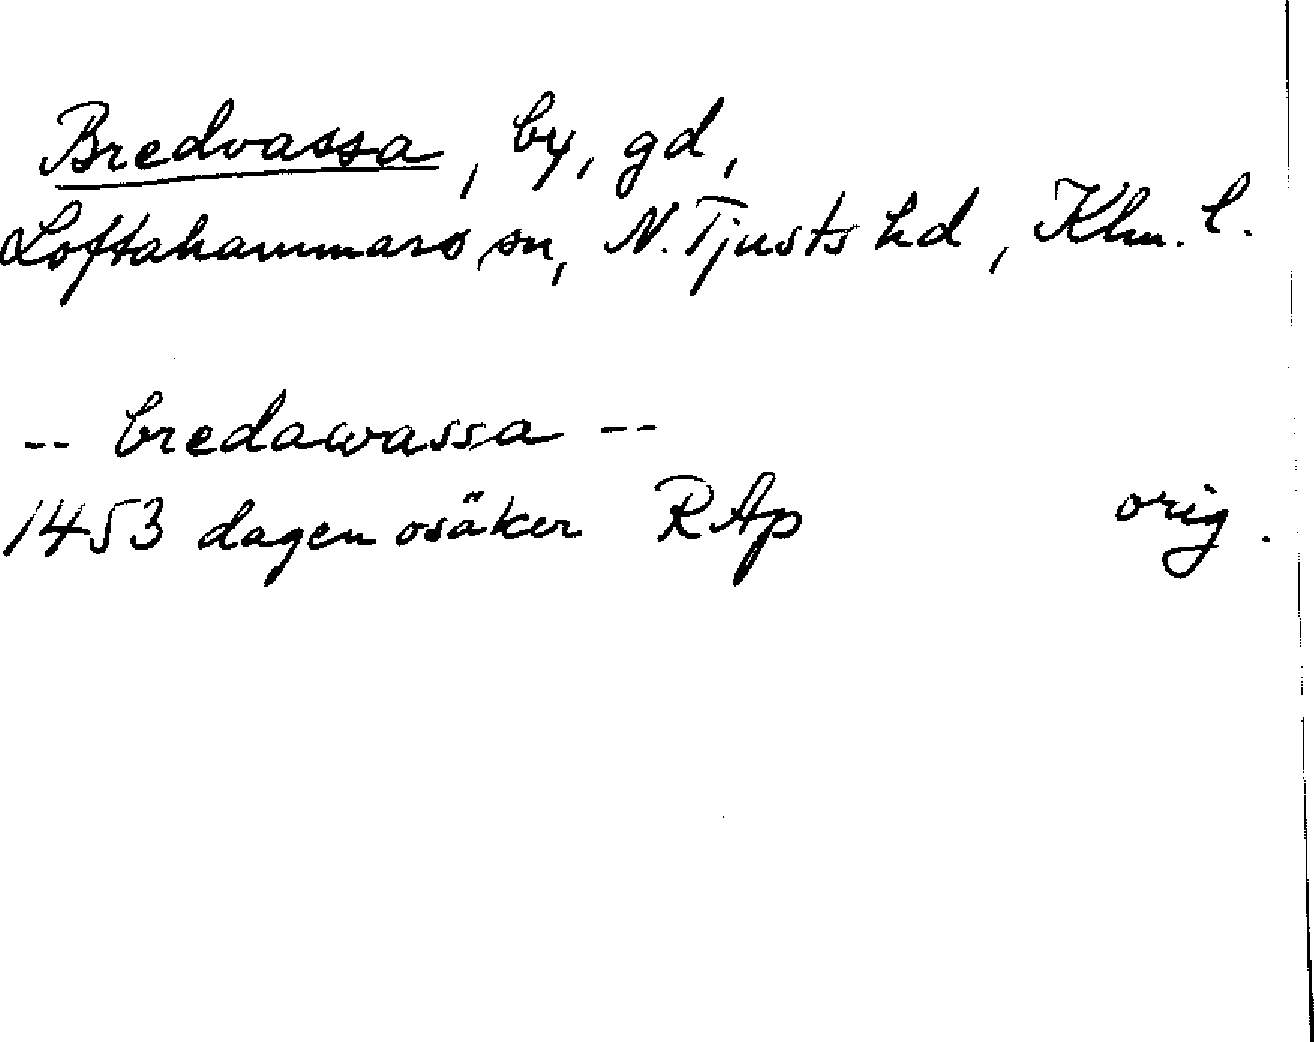 Bredvassa, by, gd,
Loftahammars sn, N. Tjusts hd, Klm. l.
-- bredawassa --
1453 dagen osäker RAp orig.